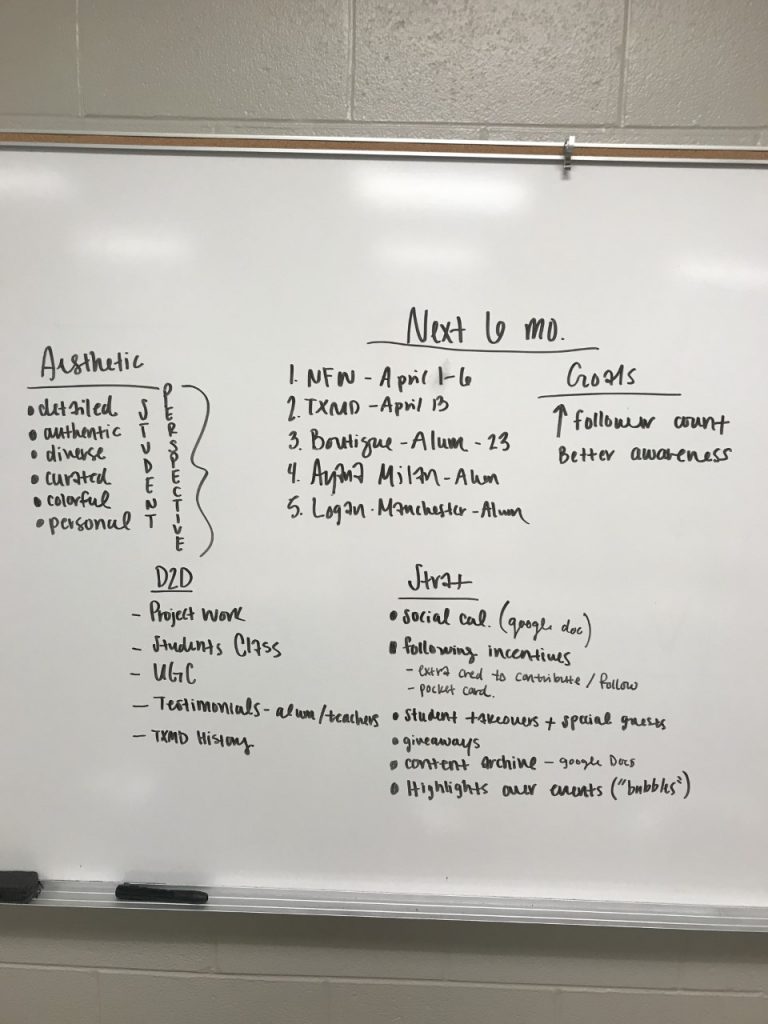 Next 6 mo.
Aesthetic
• detailed
• authentic
• diverse
• curated
• colorful
• personal
STUDENT
PERSPECTIVE
1. NFW - April 1-6
2. TXMD - April 13
3. Boutique - Alum - 23
4. Milan - Alum
5. Logan Manchester - Alum
Goals
↑ follower count
Better awareness
D2D
- Project Work
- Students Class
- UGC
- Testimonials - alum/teachers
- TXMD History
Strat
• social cal. (google doc)
• following incentives
- extra cred to contribute / follow
- pocket card.
• student takeovers + special guests
• giveaways
• content archive - google Docs
• Highlights over events ("bubbles")